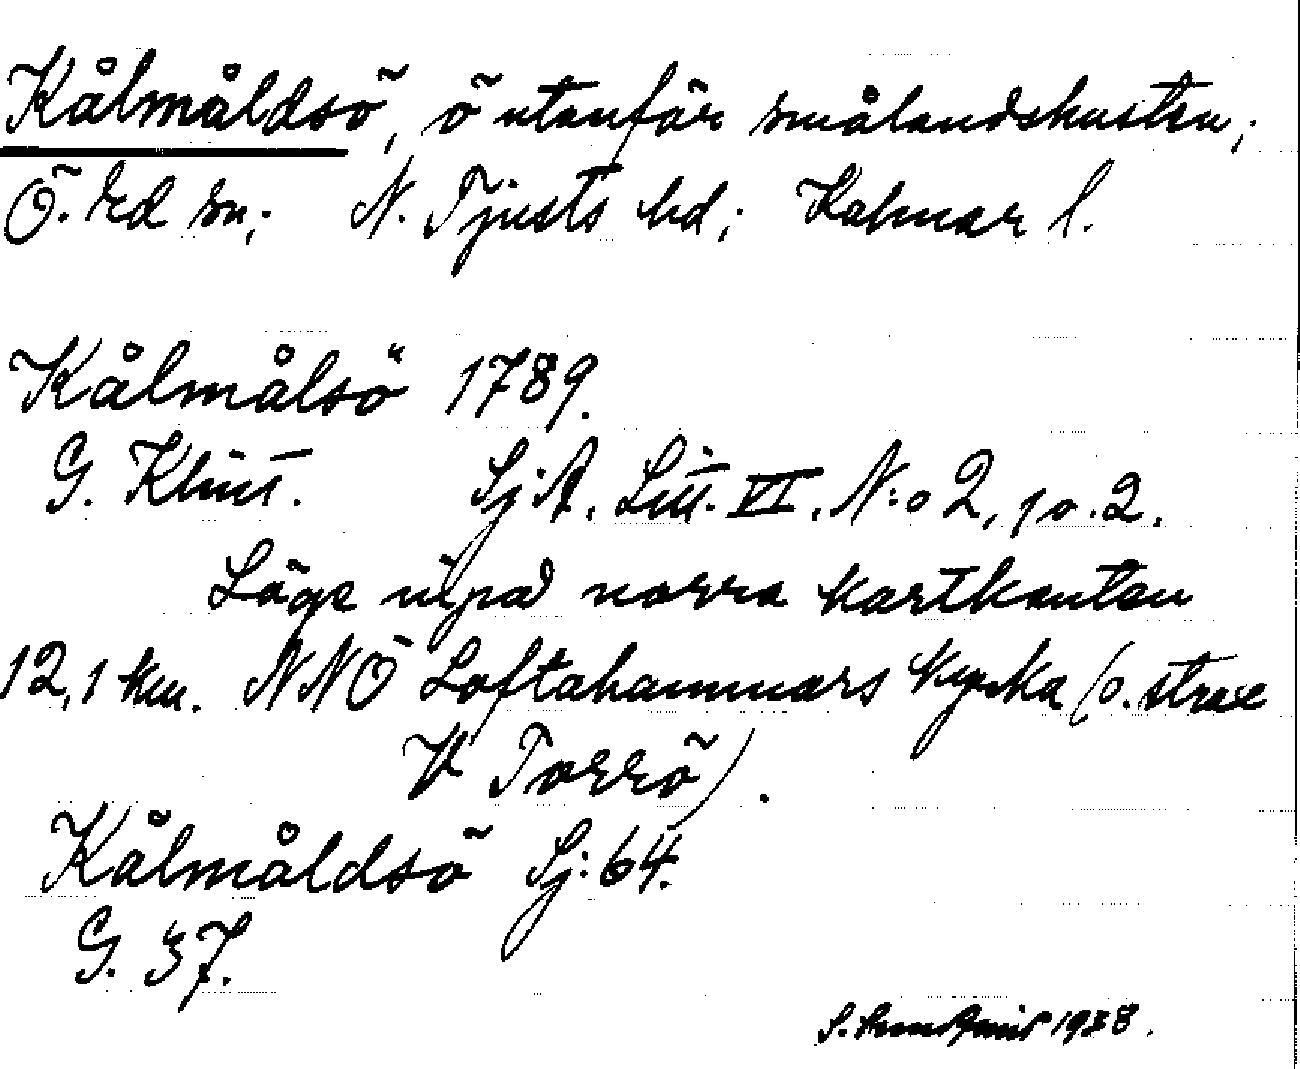 Kålmåldsö, ö utanför smålandskusten;
Ö. Ed sn; N. Tjusts hd; Kalmar l.
Kålmålsö 1789.
G. Klint. Sj:A. Litt. VI. N:o 2, 10.2.
Läge uppå norra kartkanten
12,1 km. NNÖ Loftahammars kyrka (o. strax
V Torrö).
Kålmåldsö Sj:64.
G. 37.
S. 1938.